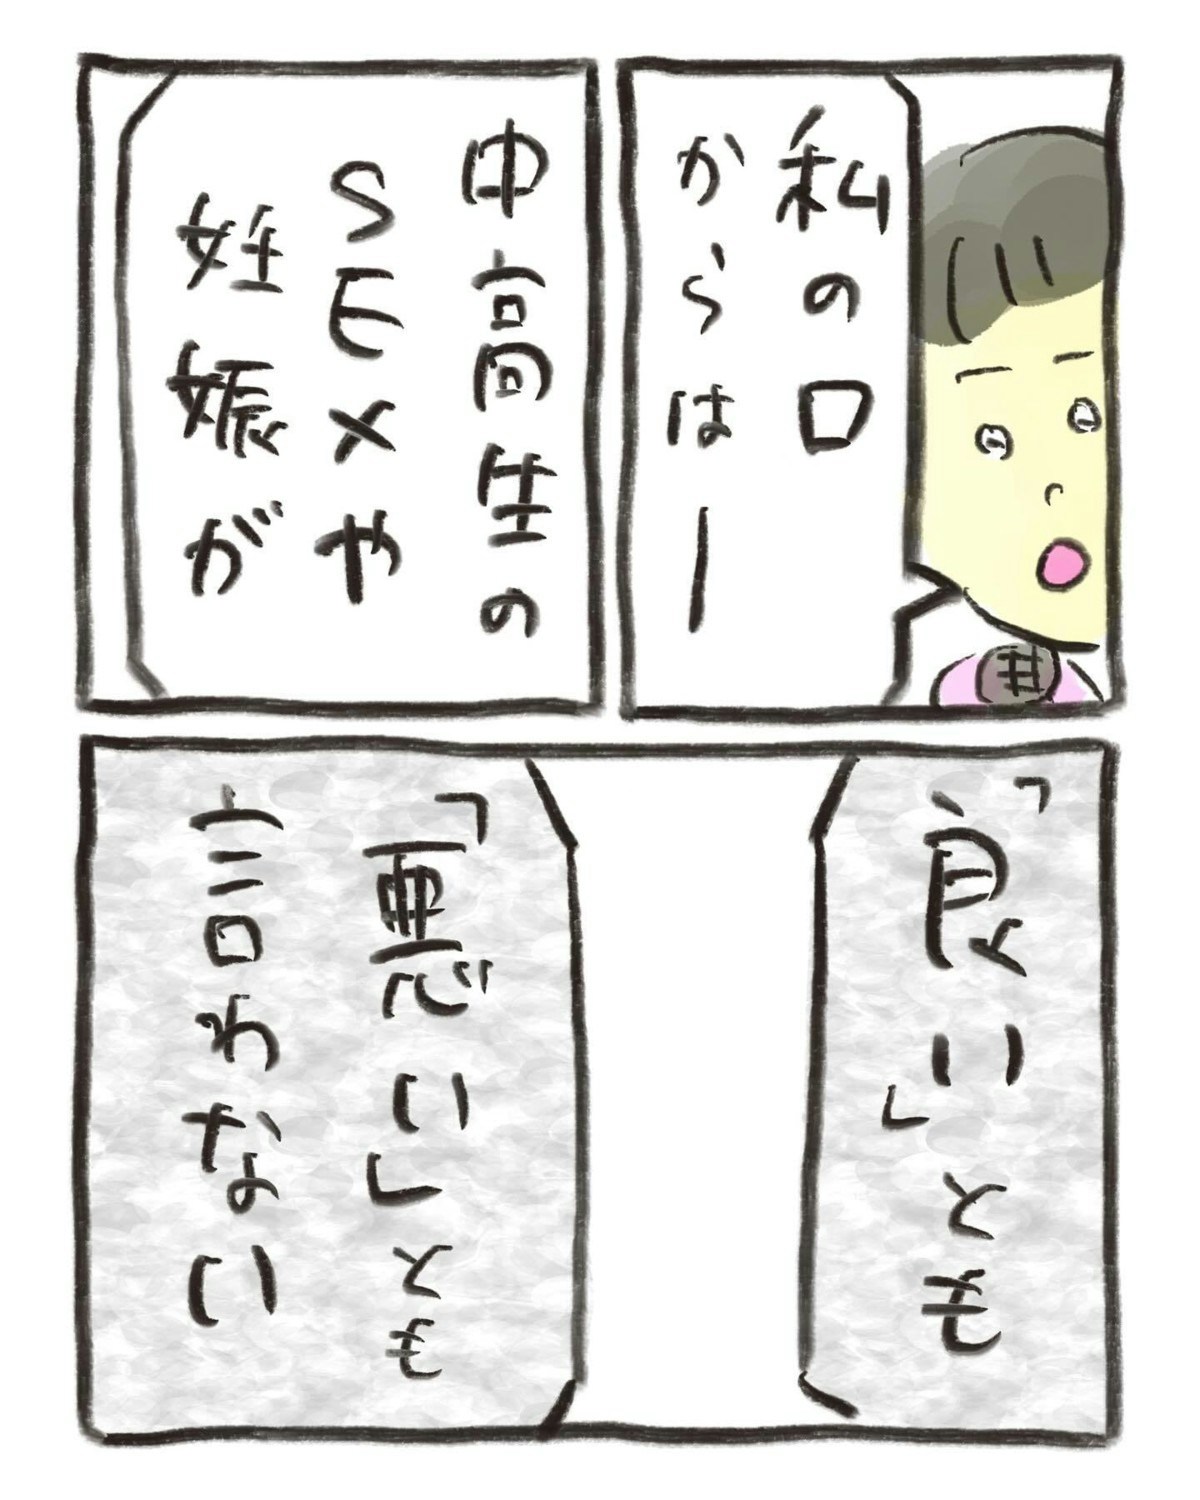 私の口
からは―
中高生の
SEXや
妊娠が
「良い」とも
「悪い」とも
言わない